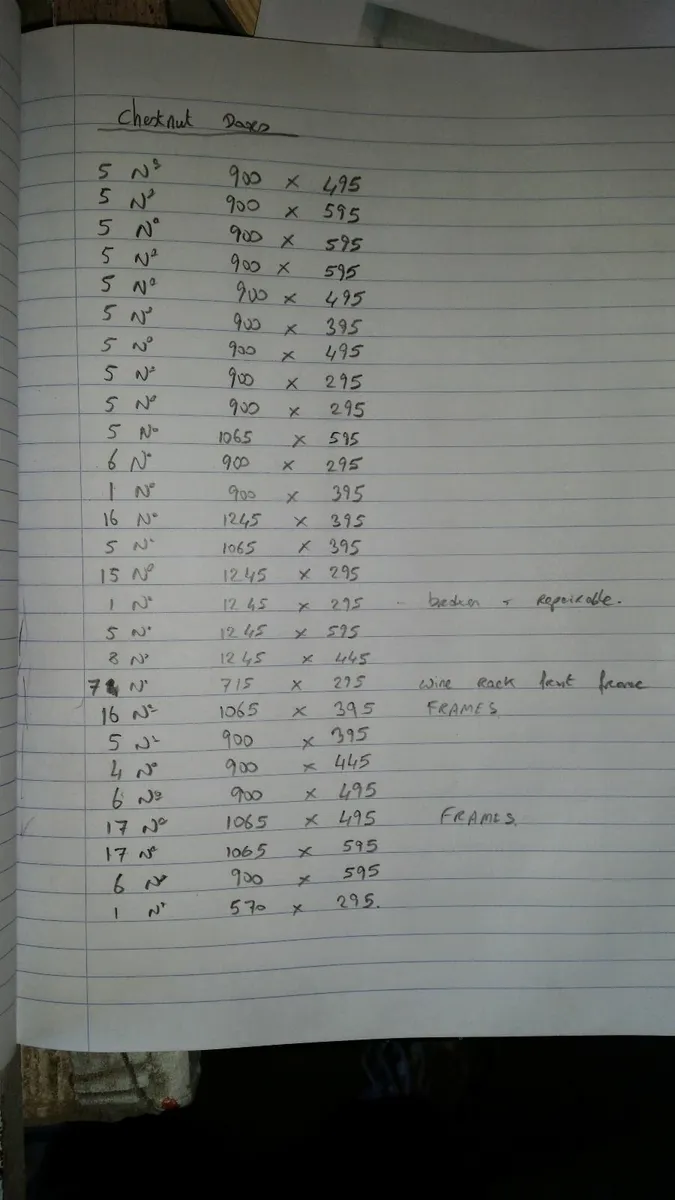 Chestnut Doors
5 Nº 900 x 495
5 Nº 900 x 595
5 Nº 900 x 595
5 Nº 900 x 595
5 Nº 900 x 495
5 Nº 900 x 395
5 Nº 900 x 495
5 Nº 900 x 295
5 Nº 900 x 295
5 Nº 1065 x 595
6 Nº 900 x 295
1 Nº 900 x 395
16 Nº 1245 x 395
5 Nº 1065 x 395
15 Nº 1245 x 295
1 Nº 1245 x 295 - broken + repairable.
5 Nº 1245 x 595
8 Nº 1245 x 445
7 Nº 715 x 295 wine rack front frame
16 Nº 1065 x 395 FRAMES
5 Nº 900 x 395
4 Nº 900 x 445
6 Nº 900 x 495
17 Nº 1065 x 495 FRAMES.
17 Nº 1065 x 595
6 Nº 900 x 595
1 Nº 570 x 295.